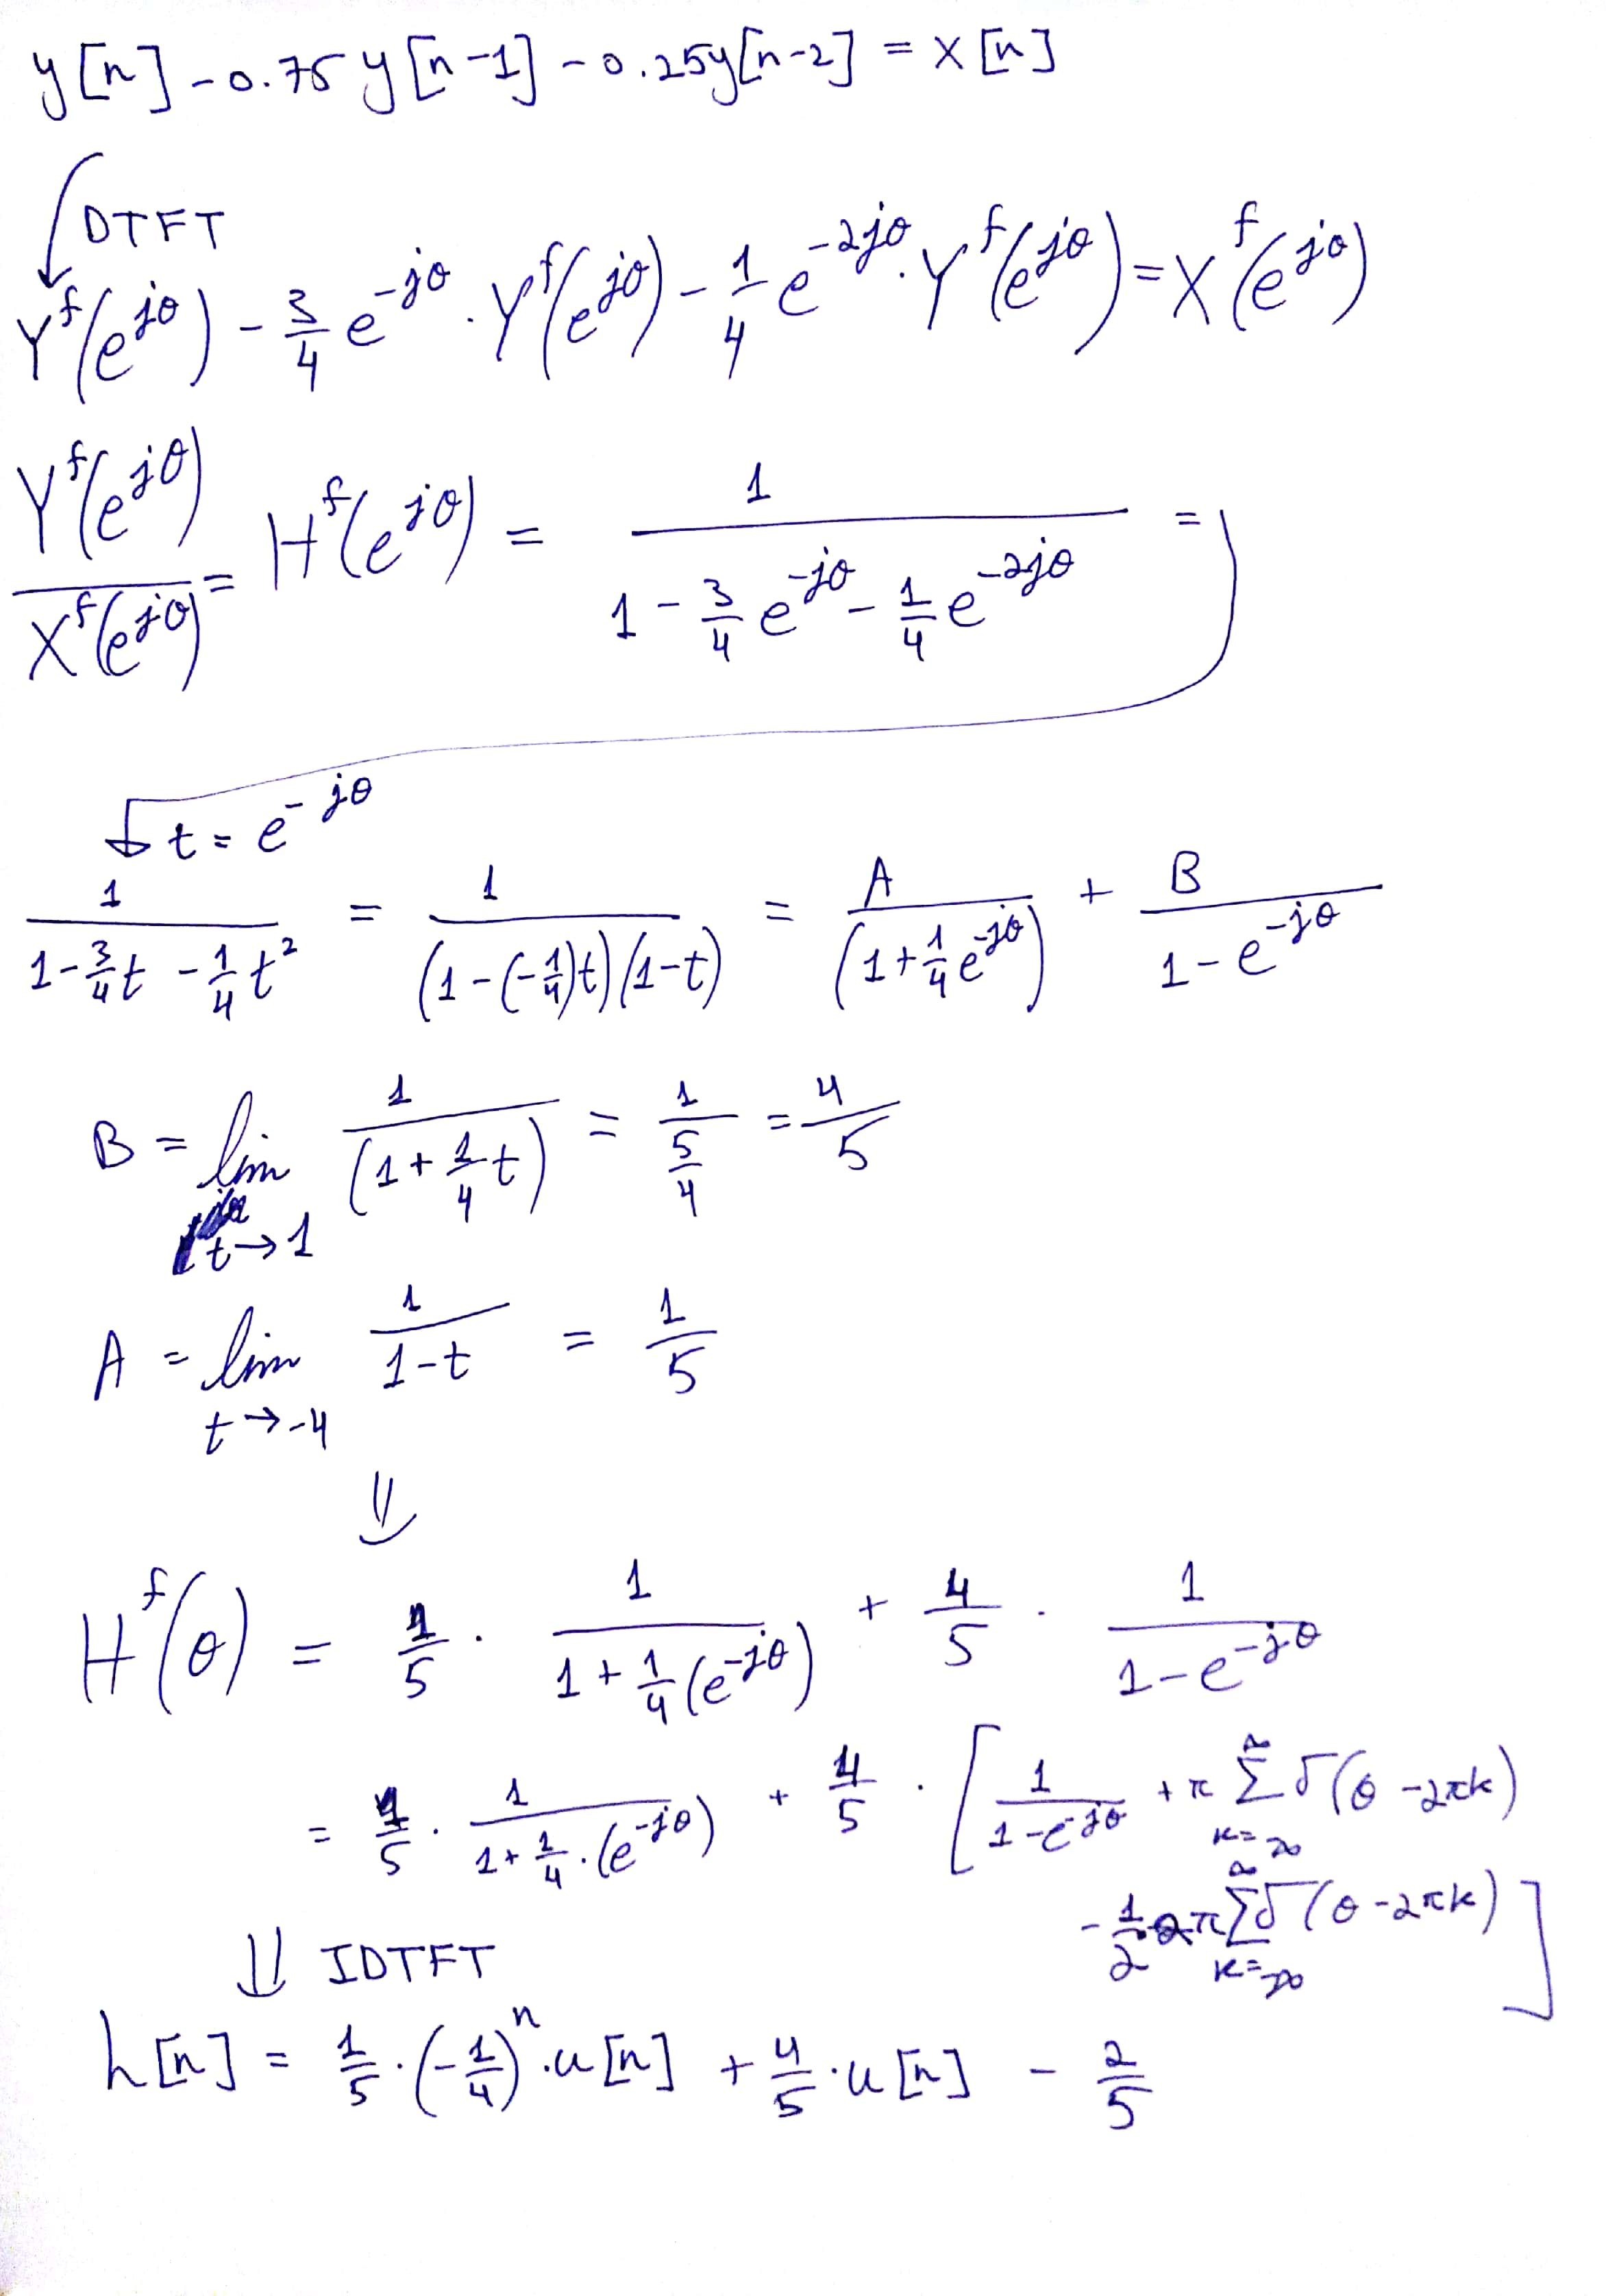 y[n] - 0.75 y[n-1] - 0.25y[n-2] = x[n]
DTFT
Y^f(e^{jθ}) - 3/4 e^{-jθ} · Y^f(e^{jθ}) - 1/4 e^{-2jθ} · Y^f(e^{jθ}) = X^f(e^{jθ})
Y^f(e^{jθ}) / X^f(e^{jθ}) = H^f(e^{jθ}) = 1 / (1 - 3/4 e^{-jθ} - 1/4 e^{-2jθ}) =
t = e^{-jθ}
1 / (1 - 3/4 t - 1/4 t^2) = 1 / ((1 - (-1/4)t)(1-t)) = A / (1 + 1/4 e^{-jθ}) + B / (1 - e^{-jθ})
B = lim t→1 1 / (1 + 1/4 t) = 1 / (5/4) = 4/5
A = lim t→-4 1 / (1-t) = 1/5
⇓
H^f(θ) = 1/5 · 1 / (1 + 1/4 (e^{-jθ})) + 4/5 · 1 / (1 - e^{-jθ})
= 1/5 · 1 / (1 + 1/4 · (e^{-jθ})) + 4/5 · [ 1 / (1 - e^{-jθ}) + π Σ_{k=-∞}^{∞} δ(θ - 2πk)
- 1/2 · 2π Σ_{k=-∞}^{∞} δ(θ - 2πk) ]
⇓ IDTFT
h[n] = 1/5 · (-1/4)^n · u[n] + 4/5 · u[n] - 2/5